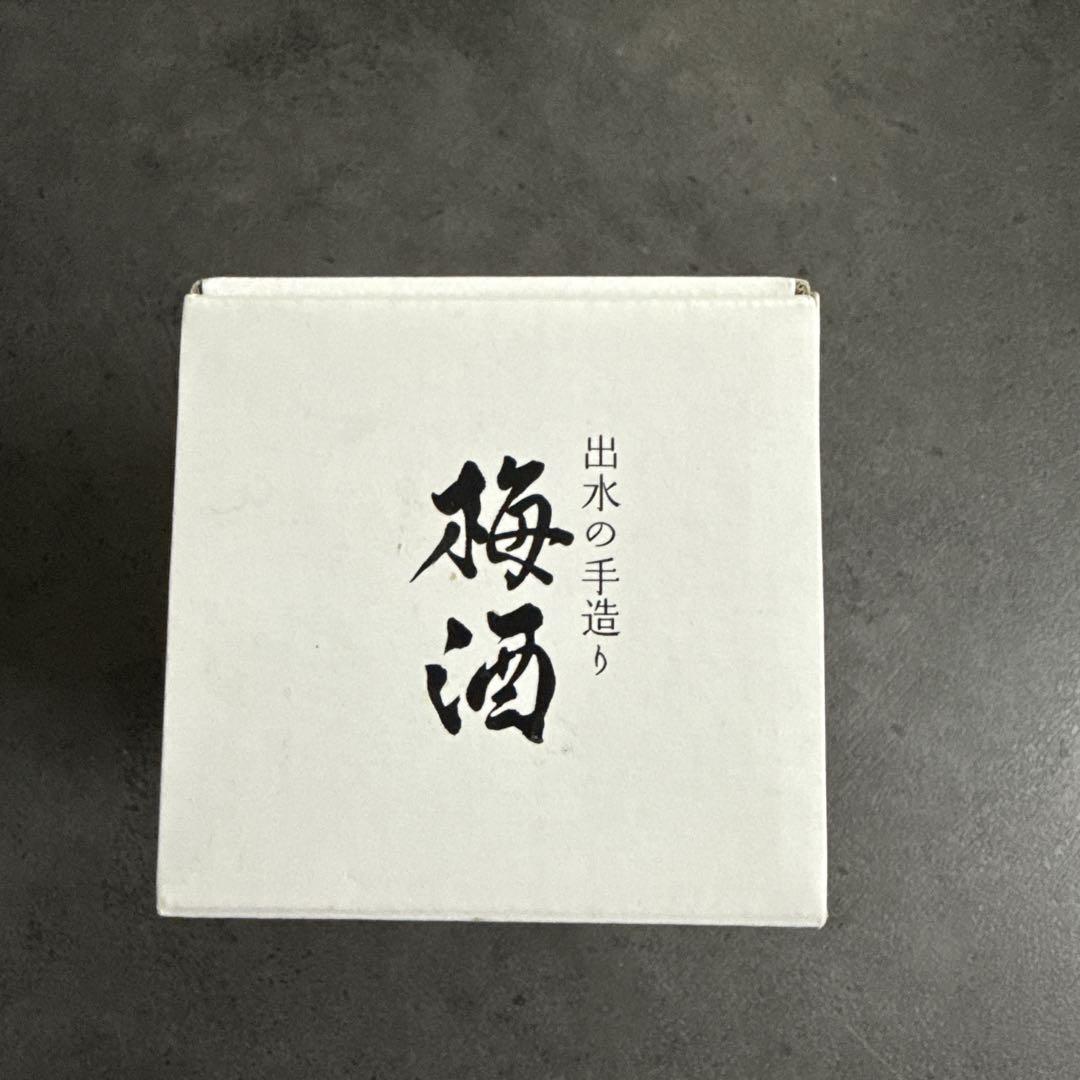 出水の手造り
梅酒